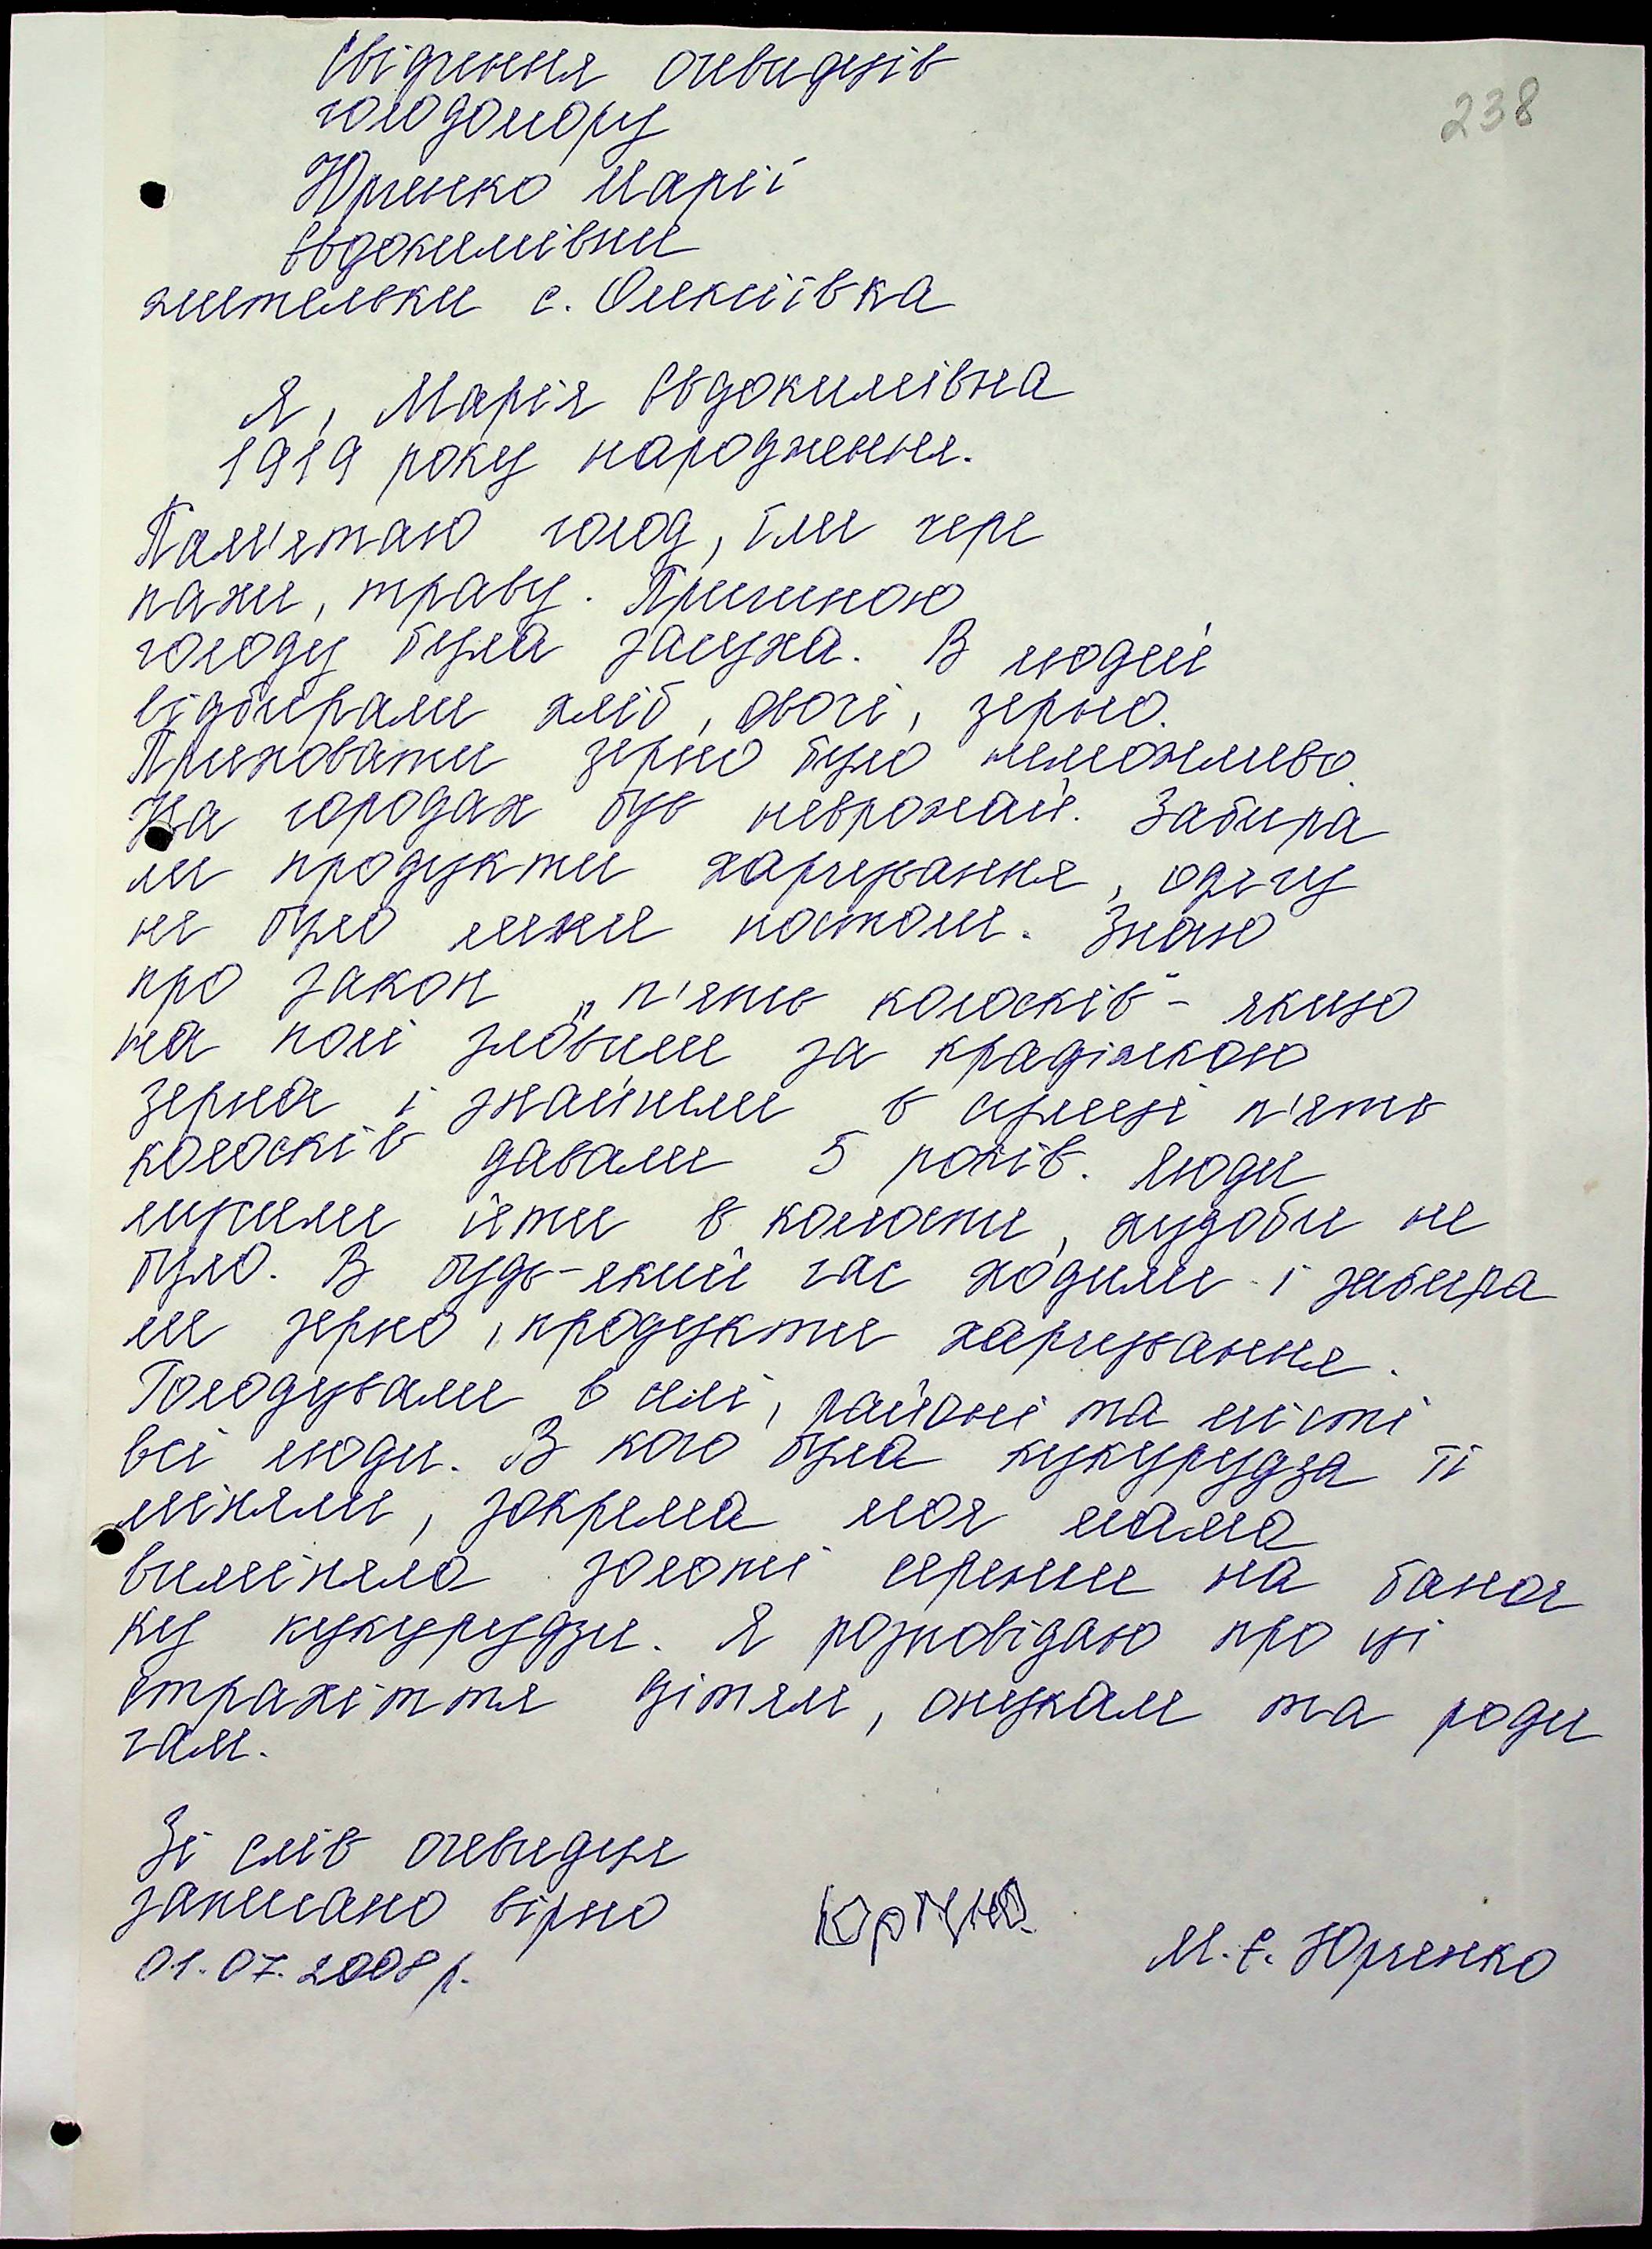 238
Свідчення очевидців
голодомору
Юрченко Марії
Євдокимівни
жительки с. Олексіївка
Я, Марія Євдокимівна
1919 року народження.
Пам'ятаю голод, їли чере
пажи, траву. Причиною
голоду була засуха. В людей
відбирали хліб, овочі, зерно.
Приховати зерно було неможливо.
На городах був неврожай. Забира
ли продукти харчування, одягу
не було лише постоли. Знаю
про закон „п'ять колосків" - якщо
на полі зловили за крадіжкою
зерна і знайшли в сумці п'ять
колосків давали 5 років. Люди
мусили йти в колгоспи, худоби не
було. В будь-який час ходили і забира
ли зерно, продукти харчування.
Голодували в селі, районі та місті
всі люди. В кого була кукурудза її
міняли, зокрема моя мама
виміняла золоті сережки на баноч
ку кукурудзи. Я розповідаю про ці
страхіття дітям, онукам та роди
чам.
Зі слів очевидця
записано вірно
01.07.2008 р.
М. Є. Юрченко